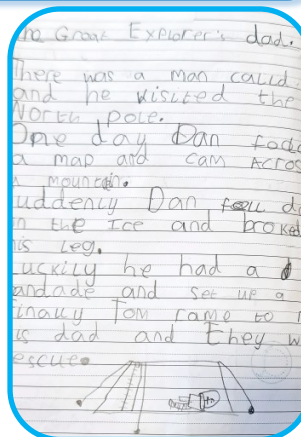 The Great Explorer's dad.
There was a man calld
and he visited the
North pole.
One day Dan
a map and cam
mountein.
Suddenly Dan fell
the Ice and broked
his leg.
Luckily he had a
bandade and set up a
Finally Tom came to
his dad and they
rescue.